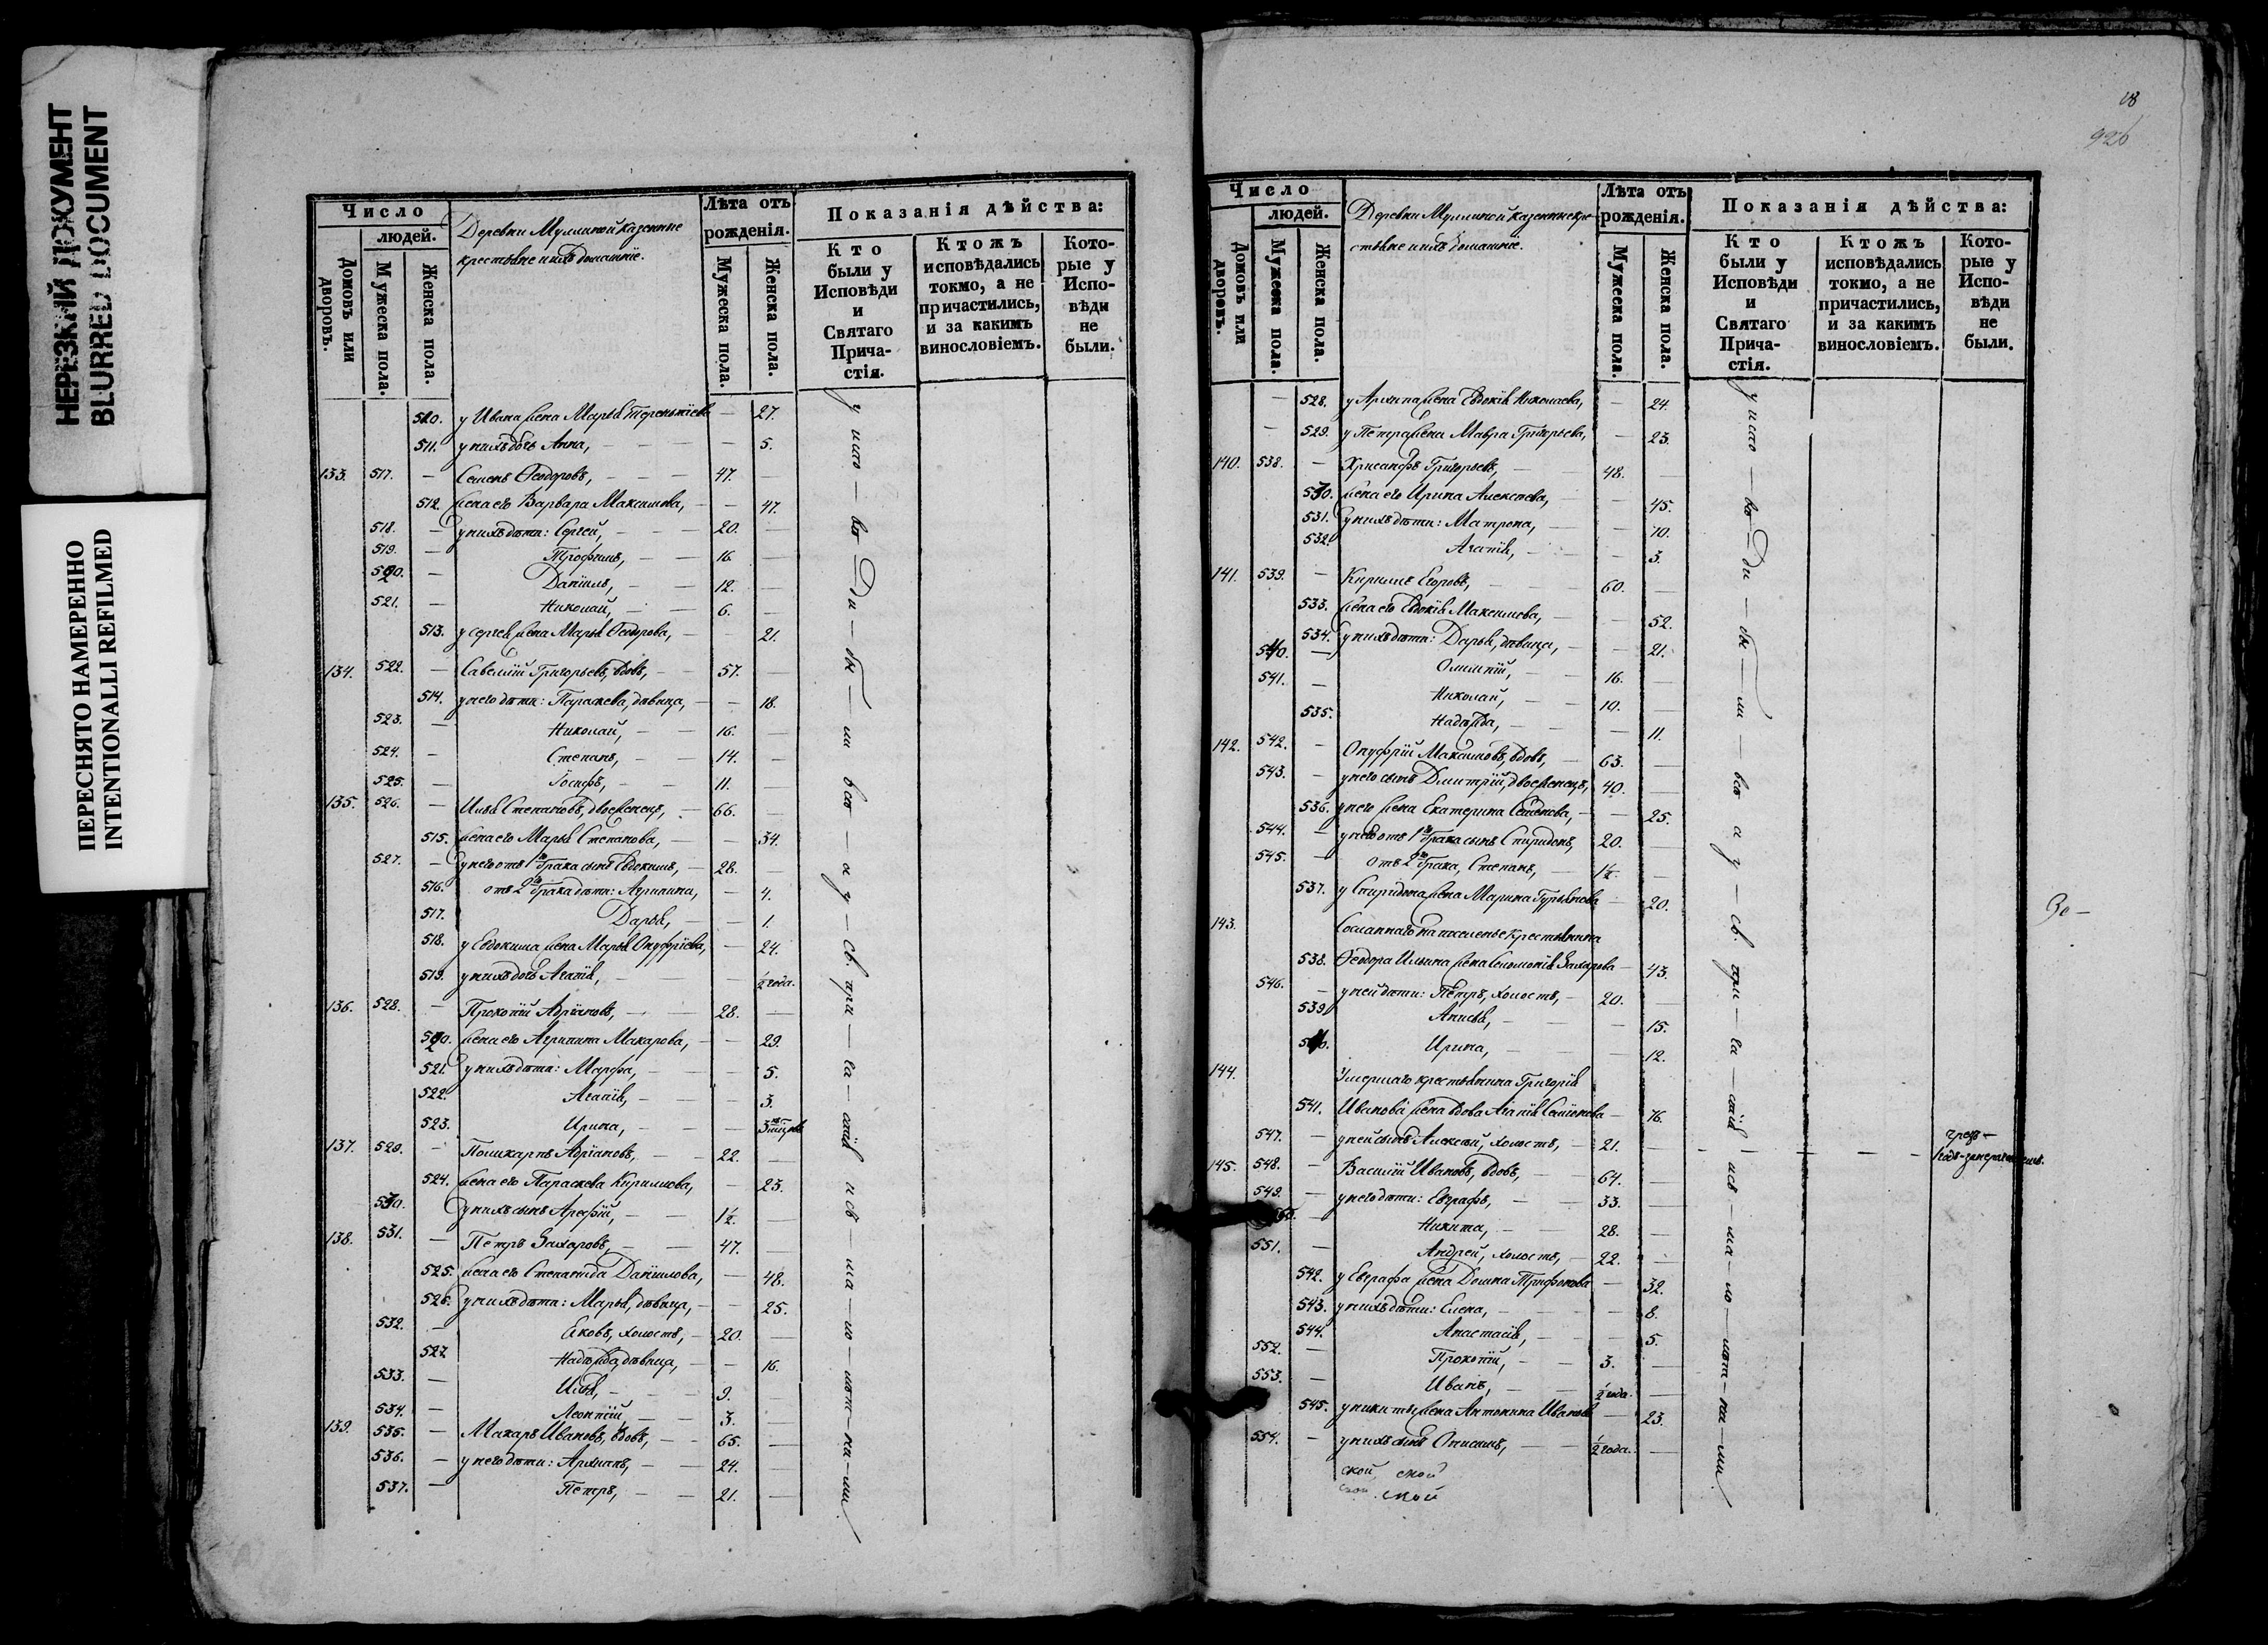 НЕРЕЗКИЙ ДОКУМЕНТ
BLURRED DOCUMENT
ПЕРЕСНЯТО НАМЕРЕННО
INTENTIONALLI REFILMED
Число
людей.
Домовъ или дворовъ.
Мужеска пола.
Женска пола.
Деревни Муллиной казенные
крестьяне и ихъ домашніе.
Лѣта отъ
рожденія.
Мужеска пола.
Женска пола.
Показанія дѣйства:
Кто были у Исповѣди и Святаго Причастія.
Ктожъ исповѣдались токмо, а не причастились, и за какимъ винословіемъ.
Которые у Исповѣди не были.
510. у Ивана жена Марья Терентіева — 27.
511. у нихъ дочь Анна, — — 5.
133. 517. — Семенъ Ѳеодоровъ, — 47. —
512. жена его Варвара Максимова, — 47.
518. — у нихъ дѣти: Сергей, — 20. —
519. — Трофимъ, — 16. —
520. — Даніилъ, — 12. —
521. — Николай, — 6. —
513. у Сергея жена Марья Ѳеодорова, — 21.
134. 522. — Савелій Григорьевъ, вдовъ, — 57. —
514. у него дѣти: Параскева, дѣвица, — 18.
523. — Николай, — 16. —
524. — Степанъ, — 14. —
525. — Іосифъ, — 11. —
135. 526. — Илья Степановъ, двоеженецъ, — 66. —
515. жена его Марья Степанова, — 34.
527. — у него отъ 1го брака сынъ Евдокимъ, — 28. —
516. отъ 2го брака дѣти: Агрипина, — 4.
517. Дарья, — 1.
518. у Евдокима жена Марья Онуфріева, — 24.
519. у нихъ дочь Агапія, — ½ года.
136. 528. — Прокопій Адріановъ, — 28. —
520. жена его Агрипина Макарова, — 29.
521. у нихъ дѣти: Марфа, — 5.
522. Агапія, — 3.
523. Ирина, —
137. 529. — Поликарпъ Адріановъ, — 22. —
524. жена его Параскева Кирилова, — 23.
530. у нихъ сынъ Арефій, — 1½. —
138. 531. — Петръ Захаровъ, — 47. —
525. жена его Степанида Даніилова, — 48.
526. у нихъ дѣти: Марья, дѣвица, — 25.
532. — Яковъ, холостъ, — 20. —
527. Надежда, дѣвица, — 16.
533. — Илья, — 9.
534. — Леонтій, — 3. —
139. 535. — Макаръ Ивановъ, вдовъ, — 65. —
536. — у него дѣти: Архипъ, — 24. —
537. — Петръ, — 21. —
у испо — вѣ — ди — бы — ли вся — а у — св. при — ча — стія
18
926
Число
людей.
Домовъ или дворовъ.
Мужеска пола.
Женска пола.
Деревни Муллиной казенные кре-
стьяне и ихъ домашніе.
Лѣта отъ
рожденія.
Мужеска пола.
Женска пола.
Показанія дѣйства:
Кто были у Исповѣди и Святаго Причастія.
Ктожъ исповѣдались токмо, а не причастились, и за какимъ винословіемъ.
Которые у Исповѣди не были.
— 528. у Архипа жена Евдокія Николаева, — 24.
— 529. у Петра жена Мавра Григорьева, — 23.
140. 538. — Хрисанфъ Григорьевъ, — 48. —
530. жена его Ирина Алексѣева, — 45.
531. у нихъ дѣти: Матрона, — 10.
532. Агапія, — 3.
141. 539. — Кирилъ Егоровъ, — 60. —
533. жена его Евдокія Максимова, — 52.
534. у нихъ дѣти: Дарья, дѣвица, — 21.
540. — Олимпій, — 16. —
541. — Николай, — 10. —
535. Надежда, — 11.
142. 542. — Онуфрій Максимовъ, вдовъ, — 63. —
543. — у него сынъ Дмитрій, двоеженецъ, 40. —
536. у него жена Екатерина Семенова, — 25.
544. — у него отъ 1го брака сынъ Спиридонъ, 20. —
545. — отъ 2го брака, Степанъ, — 1½. —
537. у Спиридона жена Марина Гурьянова — 20.
143. Сосланнаго на поселенье крестьянина
538. Ѳеодора Ильина жена Соломонія Захарова — 43.
546. — у ней дѣти: Петръ, холостъ, — 20. —
539. Анисья, — 15.
540. Ирина, — 12.
144. Умершаго крестьянина Григорія
541. Иванова жена вдова Агапія — 76.
547. — у ней сынъ Алексѣй, холостъ, — 21. —
145. 548. — Василій Ивановъ, вдовъ, — 64. —
549. — у него дѣти: Евграфъ, — 33. —
— Никита, — 28. —
551. — Андрей, холостъ, — 22. —
542. у Евграфа жена Домна Трифонова — 32.
543. у нихъ дѣти: Елена, — 8.
544. Анастасія, — 5.
552. — Прокопій, — 3. —
553. — Иванъ, — ½ года. —
545. у Никиты жена Антонина Иванова — 23.
554. — у нихъ сынъ Онисимъ, — ½ года. —
ской, ской
ской
у испо — вѣ — ди — бы — ли — вся а у — св. при — ча — стія